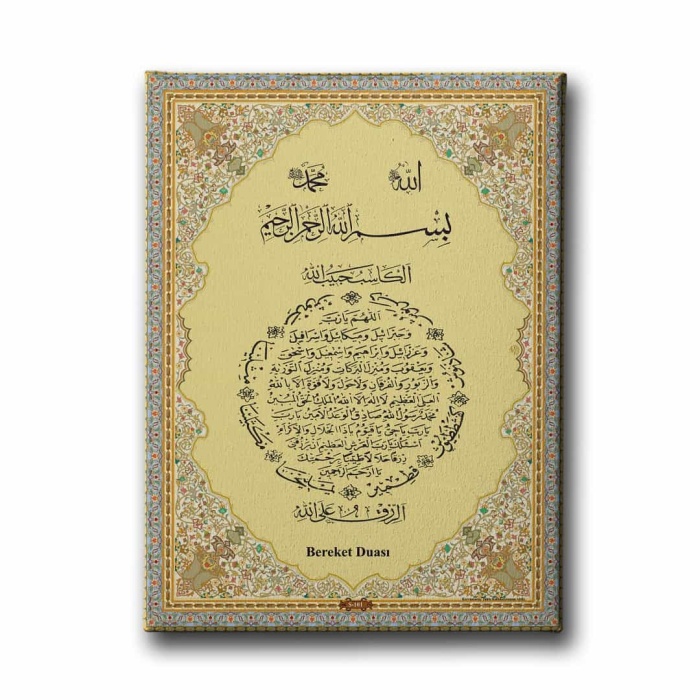 الله
محمد
بسم الله الرحمن الرحيم
الكاسب حبيب الله
اللهم يا رب
وجبرائيل وميكائيل واسرافيل
وعزرائيل وابراهيم واسمعيل واسحق
ويعقوب ومنزل البركات ومنزل التورية
والزبور والفرقان ولاحول ولاقوة الا بالله
العلي العظيم لا اله الا الله الملك الحق المبين
محمد رسول الله صادق الوعد الامين يا رب
يا رب ياحي يا قيوم ياذا الجلال والاكرام
اسئلك يا رب العرش العظيم ان ترزقني
رزقا حلالا طيبا برحمتك
يا ارحم الراحمين
يمليخا
مكثلينا
مثلينا
كفشططيوش
قطمير
الرزق على الله
Bereket Duası
S-101